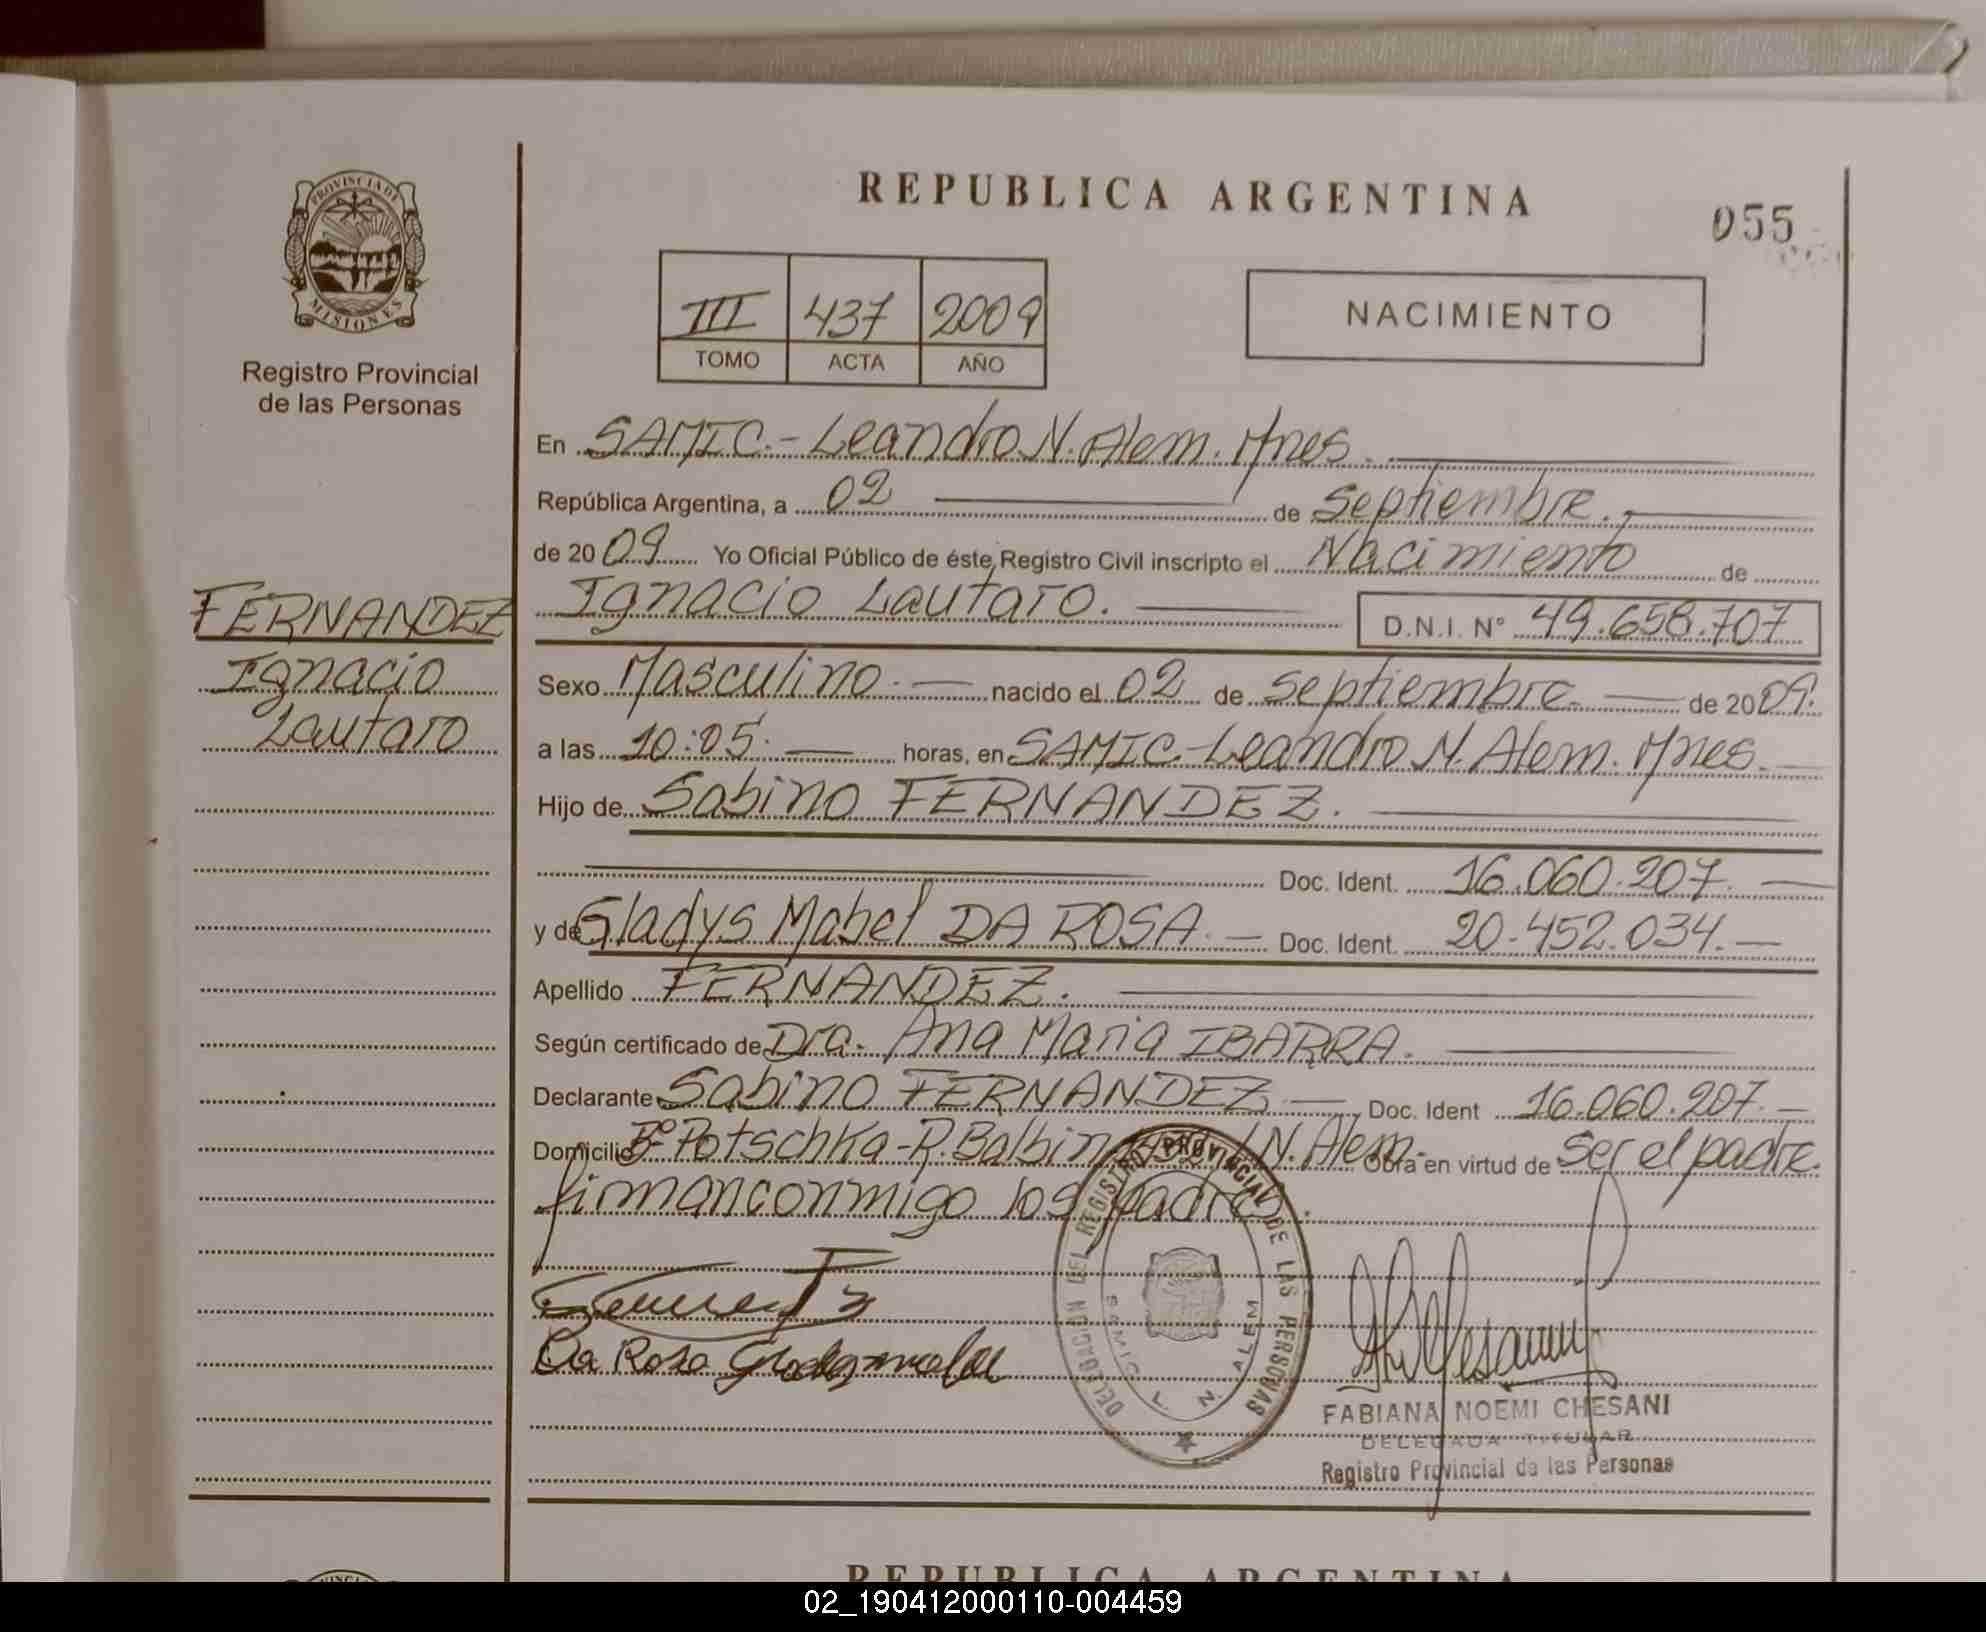 REPUBLICA ARGENTINA
055
PROVINCIA DE
MISIONES
Registro Provincial
de las Personas
III 437 2009
TOMO ACTA AÑO
NACIMIENTO
En SAMIC.- Leandro N. Alem. Mnes.
República Argentina, a 02 de Septiembre.
de 2009 Yo Oficial Público de éste Registro Civil inscripto el Nacimiento de
Ignacio Lautaro. D.N.I. N° 49.658.707
FERNANDEZ
Ignacio
Lautaro
Sexo Masculino.- nacido el 02 de Septiembre de 2009.
a las 10:05. horas, en SAMIC.- Leandro N. Alem. Mnes.
Hijo de Sabino FERNANDEZ.
Doc. Ident. 16.060.207.
y de Gladys Mabel DA ROSA. Doc. Ident. 20.452.034.
Apellido FERNANDEZ.
Según certificado de Dra. Ana Maria IBARRA.
Declarante Sabino FERNANDEZ Doc. Ident 16.060.207.
Domicilio B° Potschka - R. Balbin L.N. Alem.- Obra en virtud de Ser el padre.
firman conmigo los padres.
Da Rosa
DELEGACION DEL REGISTRO PROVINCIAL DE LAS PERSONAS
SAMIC L. N. ALEM
FABIANA NOEMI CHESANI
DELEGADA TITULAR
Registro Provincial de las Personas
REPUBLICA ARGENTINA
02_190412000110-004459